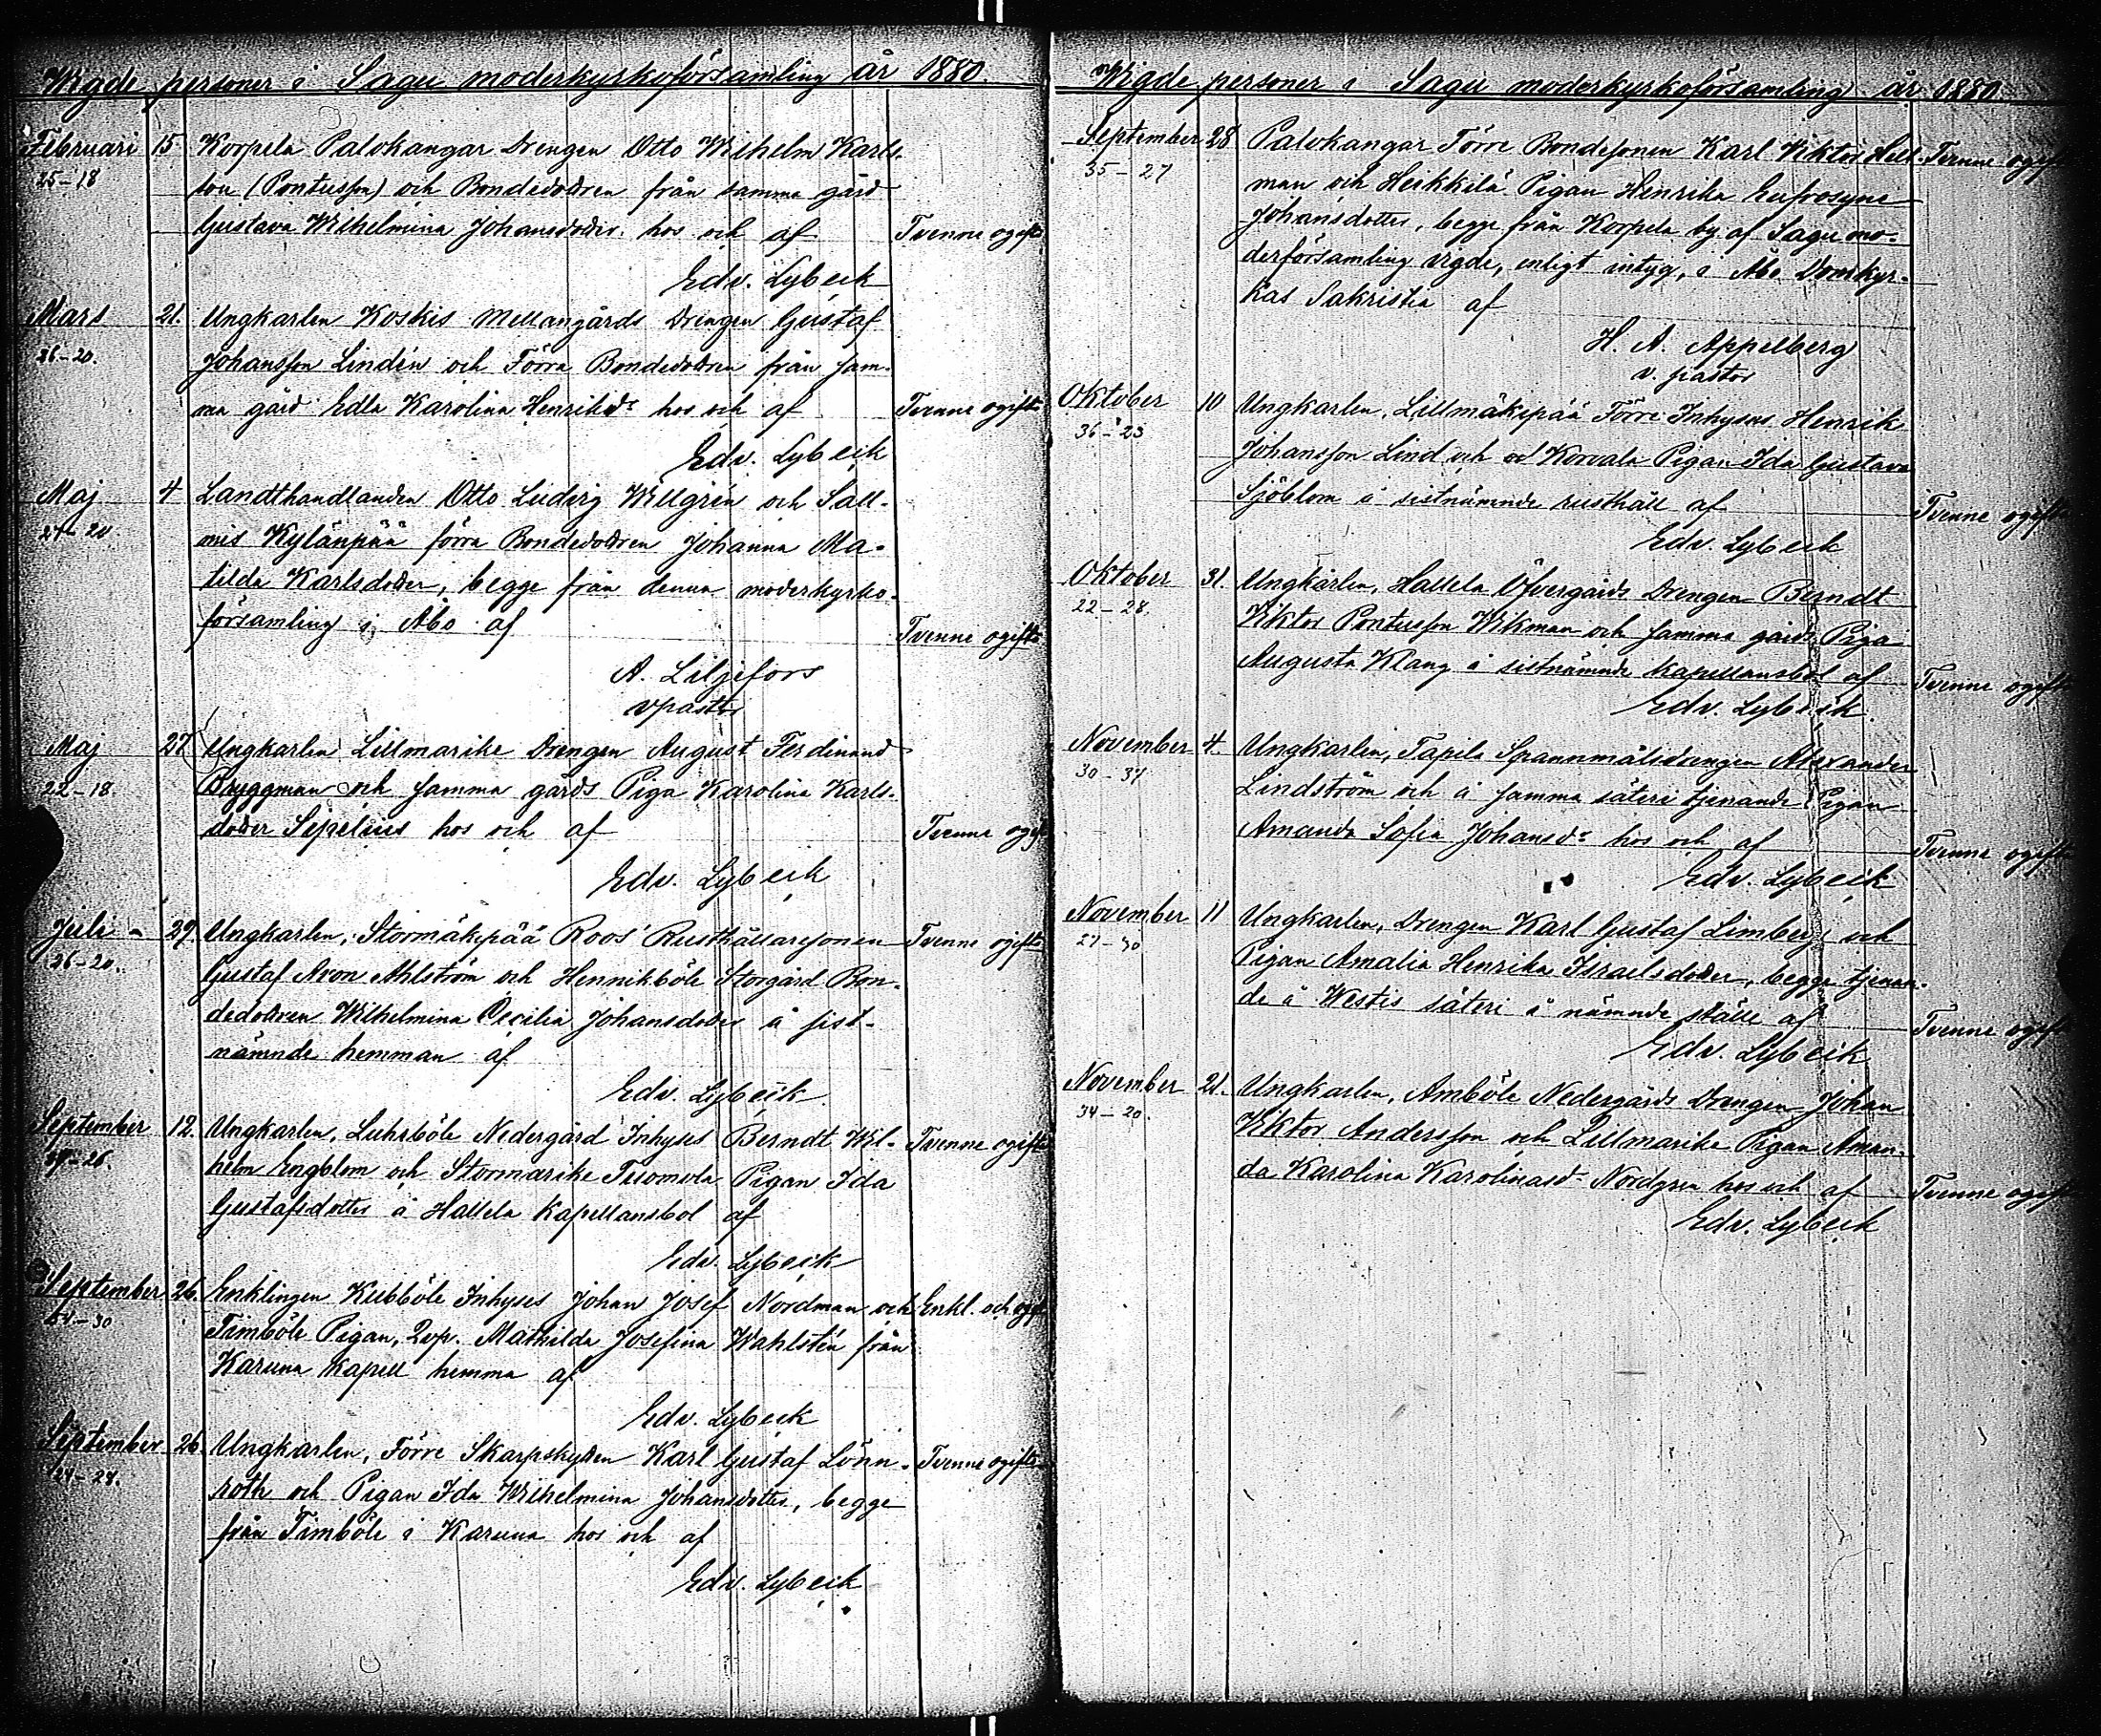 Wigde personer i Sagu moderkyrkoförsamling år 1880.
Februari 15 Korpela Palokangar Drengen Otto Wilhelm Karls-
25-18 son (Pontusson) och Bondedottren från samma gård
Gustava Wilhelmina Johansdotter hos och af Tvenne ogifte
Edv. Lybeck
Mars 21. Ungkarlen Koskis Mellangårds Drengen Gustaf
26-20. Johansson Lindén och Förra Bondedottren från sam-
ma gård Edla Karolina Henriksdr hos och af Tvenne ogifte
Edv. Lybeck
Maj 4 Landthandlanden Otto Ludvig Willgrén och Sall-
27-20 mis Kylänpää förra Bondedottren Johanna Ma-
tilda Karlsdotter, begge från denna moderkyrko-
församling i Åbo af Tvenne ogifte
A. Liljefors
v pastor
Maj 27 Ungkarlen Lillmarike Drengen August Ferdinand
22-18. Bryggman och samma gårds Piga Karolina Karls-
dotter Sipelius hos och af Tvenne ogifte
Edv. Lybeck
Juli 29. Ungkarlen, Stormäkipää Roos' Rusthållaresonen Tvenne ogifte
26-20. Gustaf Aron Ahlström och Hennikböle Storgård Bon-
dedottren Wilhelmina Cecilia Johansdotter å sist-
nämnde hemman af
Edv. Lybeck
September 12. Ungkarlen, Lukrböle Nedergård Inhyses Berndt Wil- Tvenne ogifte
helm Engblom och Stormarike Pigan Ida
Gustafsdotter å Hallela Kapellansbol af
Edv. Lybeck
September 26. Enklingen Kubböle Inhyses Johan Josef Nordman och Enkl. och ogift
54-30 Timböle Pigan, Mathilda Josefina Wahlstén från
Karuna Kapell hemma af
Edv. Lybeck
September 26 Ungkarlen, Förre Skarpskytten Karl Gustaf Lönn- Tvenne ogifte
24-24. roth och Pigan Ida Wilhelmina Johansdotter, begge
från Timböle i Karuna hos och af
Edv. Lybeck
Wigde personer i Sagu moderkyrkoförsamling år 1880.
September 28 Palokangar Förre Bondesonen Karl Viktor Hell- Tvenne ogifte
35-27 man och Heikkilä Pigan Henrika Eufrosyne
Johansdotter, begge från Korpela by af Sagu mo-
derförsamling vigde, enligt intyg, i Åbo Domkyr-
kas Sakristia af
H. A. Appelberg
v. pastor
Oktober 10 Ungkarlen, Lillmäkipää Förre Inhyses Henrik
36-23 Johansson Lind och Korvala Pigan Ida Gustava
Sjöblom å sistnämnde rusthåll af Tvenne ogifte
Edv. Lybeck
Oktober 31. Ungkarlen, Hallela Öfvergårds Drengen Berndt
22-28. Viktor Pontusson Wikman och samma gårds Piga
Augusta Klang å sistnämnde kapellansbol af Tvenne ogifte
Edv. Lybeck.
November 4. Ungkarlen, Tapila Spannmålsdrengen Alexander
30-37 Lindström och å samma säteri tjenande Pigan
Amanda Sofia Johansdr hos och af Tvenne ogifte
Edv. Lybeck
November 11 Ungkarlen, Drengen Karl Gustaf Limberg och
27-30 Pigan Amalia Henrika Israelsdotter, begge tjenan-
de å Westis säteri å nämnde ställe af Tvenne ogifte
Edv. Lybeck
November 21. Ungkarlen, Amböle Nedergårds Drengen Johan
34-20. Viktor Andersson och Lillmarike Pigan Aman-
da Karolina Karolinasdr Nordgren hos och af Tvenne ogifte
Edv. Lybeck